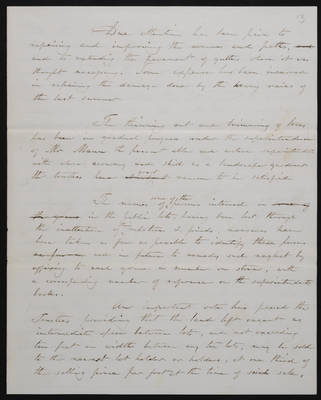 Due attention has been paid to
repairing and improving the avenues and paths,
and to extending the pavement of gutters where it was
thought necessary. Some expense has been incurred
in repairing the damage done by the heavy rains of
the last summer
The thinning out and trimming of trees
has been in gradual progress under the superintendence
of Mr Mann the present able and active superintendent
with whose economy and skill as a landscape gardener
the trustees have reason to be satisfied
The names of some of the persons interred in
in the public lots, having been lost through
the inattention of relatives & friends, measures have
been taken as far as possible to identify these
graves and in future to remedy such neglect by
affixing to each grave a number on stone, with
a corresponding number of reference on the superintendents
books.
An important vote has passed the
Trustees, providing that the land left vacant as
intermediate space between lots, and not exceeding
ten feet in width between any two lots, may be sold
to the nearest lot holder or holders, at one third of
the selling price per foot at the time of such sale.